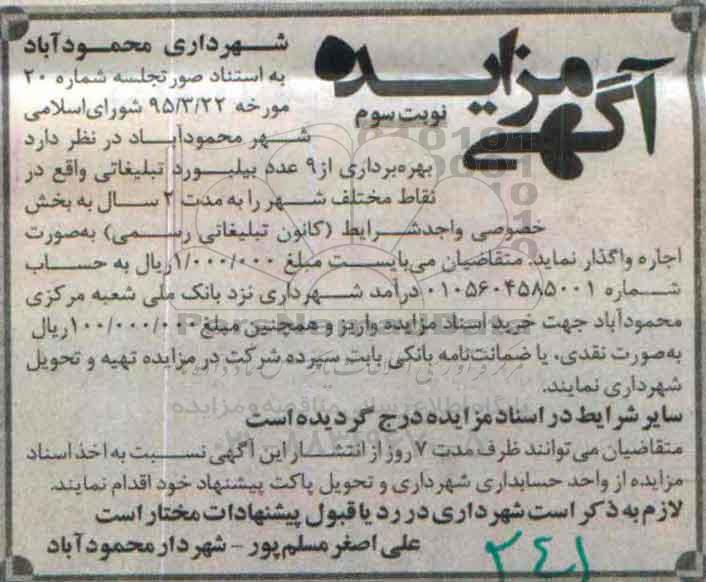 آگهی مزایده
نوبت سوم
شهرداری محمودآباد
به استناد صورتجلسه شماره ۲۰
مورخه ۹۵/۳/۲۲ شورای‌اسلامی
شهر محمودآباد در نظر دارد
بهره‌برداری از ۹ عدد بیلبورد تبلیغاتی واقع در
نقاط مختلف شهر را به مدت ۲ سال به بخش
خصوصی واجدشرایط (کانون تبلیغاتی رسمی) به‌صورت
اجاره واگذار نماید. متقاضیان می‌بایست مبلغ ۱/۰۰۰/۰۰۰ریال به حساب
شماره ۰۱۰۵۶۰۴۵۸۵۰۰۱ درآمد شهرداری نزد بانک ملی شعبه مرکزی
محمودآباد جهت خرید اسناد مزایده واریز و همچنین مبلغ ۱۰۰/۰۰۰/۰۰۰ریال
به‌صورت نقدی، یا ضمانت‌نامه بانکی بابت سپرده شرکت در مزایده تهیه و تحویل
شهرداری نمایند.
سایر شرایط در اسناد مزایده درج گردیده است
متقاضیان می‌توانند ظرف مدت ۷ روز از انتشار این آگهی نسبت به اخذ اسناد
مزایده از واحد حسابداری شهرداری و تحویل پاکت پیشنهاد خود اقدام نمایند.
لازم به ذکر است شهرداری در رد یا قبول پیشنهادات مختار است
علی اصغر مسلم‌پور - شهردار محمودآباد
۳۴۱